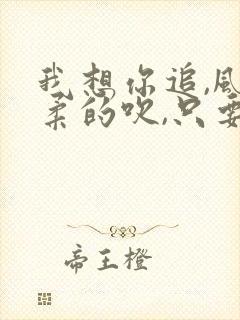 我想你追,风
柔的吹,只要
帝王橙